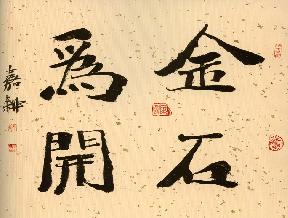 金石
為開
嘉緋